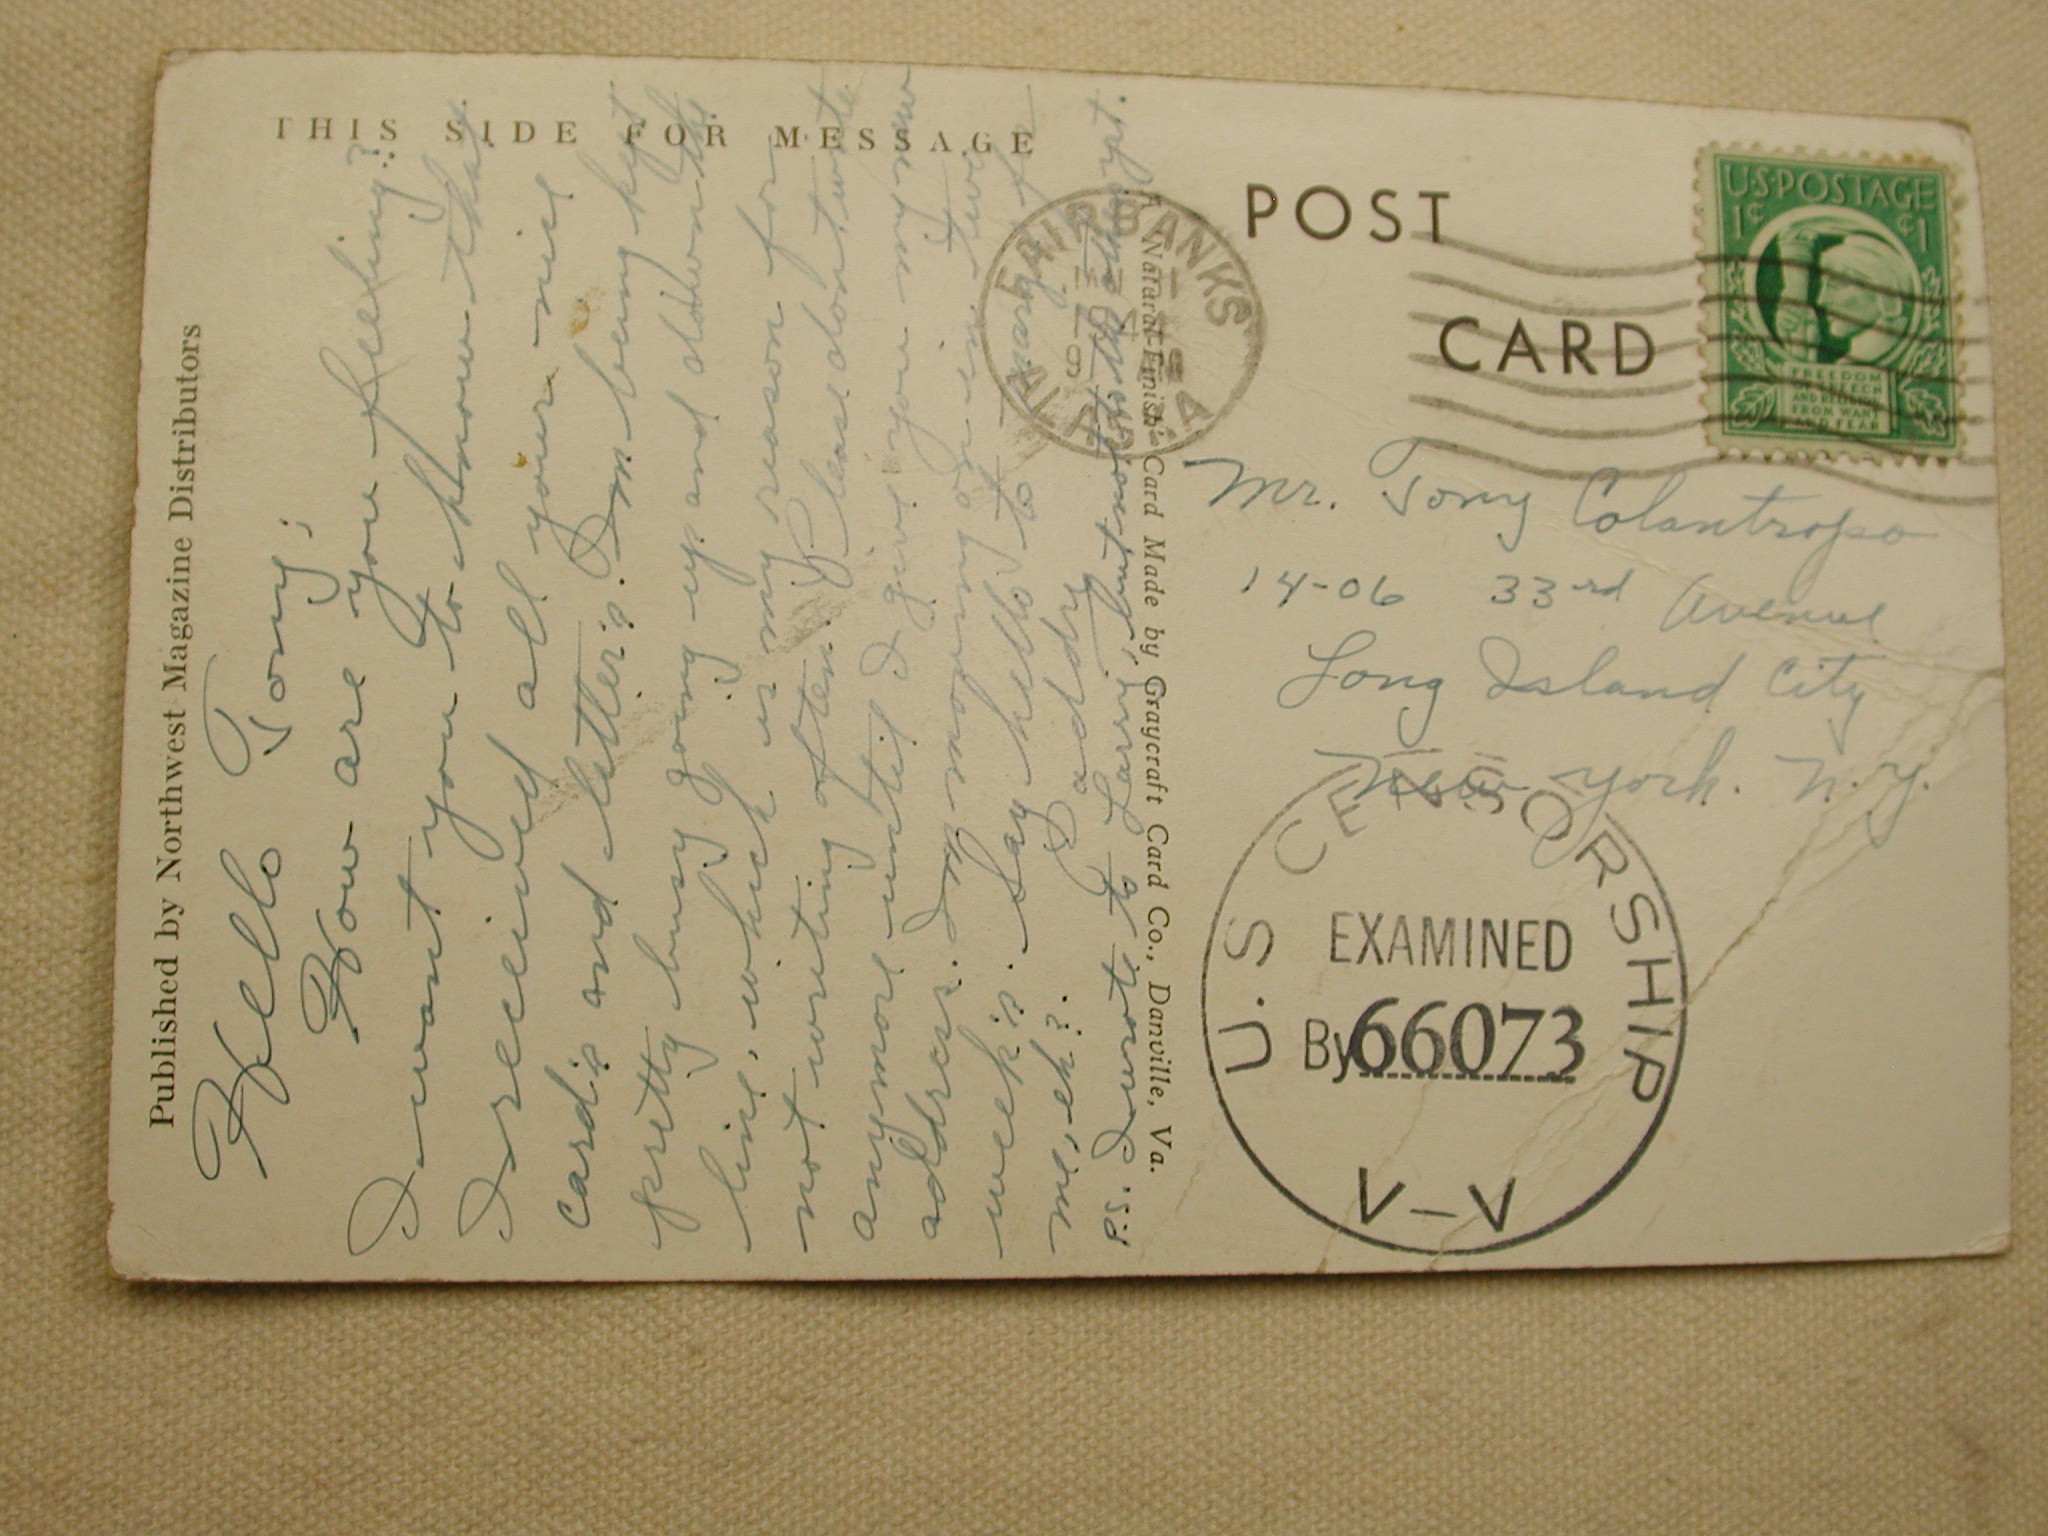 THIS SIDE FOR MESSAGE
Published by Northwest Magazine Distributors
Hello Tony:
How are you feeling?
I want you to know that
I received all your nice
card's and letter's. I'm being kept
pretty busy going up and down the
line, which is my reason for
not writing often. Please don't write
anymore until I give you my new
address. I'm going home in two
week's. Say hello to the gang for
me, eh?
Paddy
P.S. I wrote to
A "Natural-Finish" Card Made by Graycraft Card Co., Danville, Va.
FAIRBANKS
ALASKA
POST
CARD
U·S·POSTAGE
1¢ ¢1
FREEDOM
OF SPEECH
AND RELIGION
FROM WANT
AND FEAR
Mr. Tony Colantropo
14-06 33rd Avenue
Long Island City
New York. N.Y.
U.S. CENSORSHIP
EXAMINED
By 66073
V–V